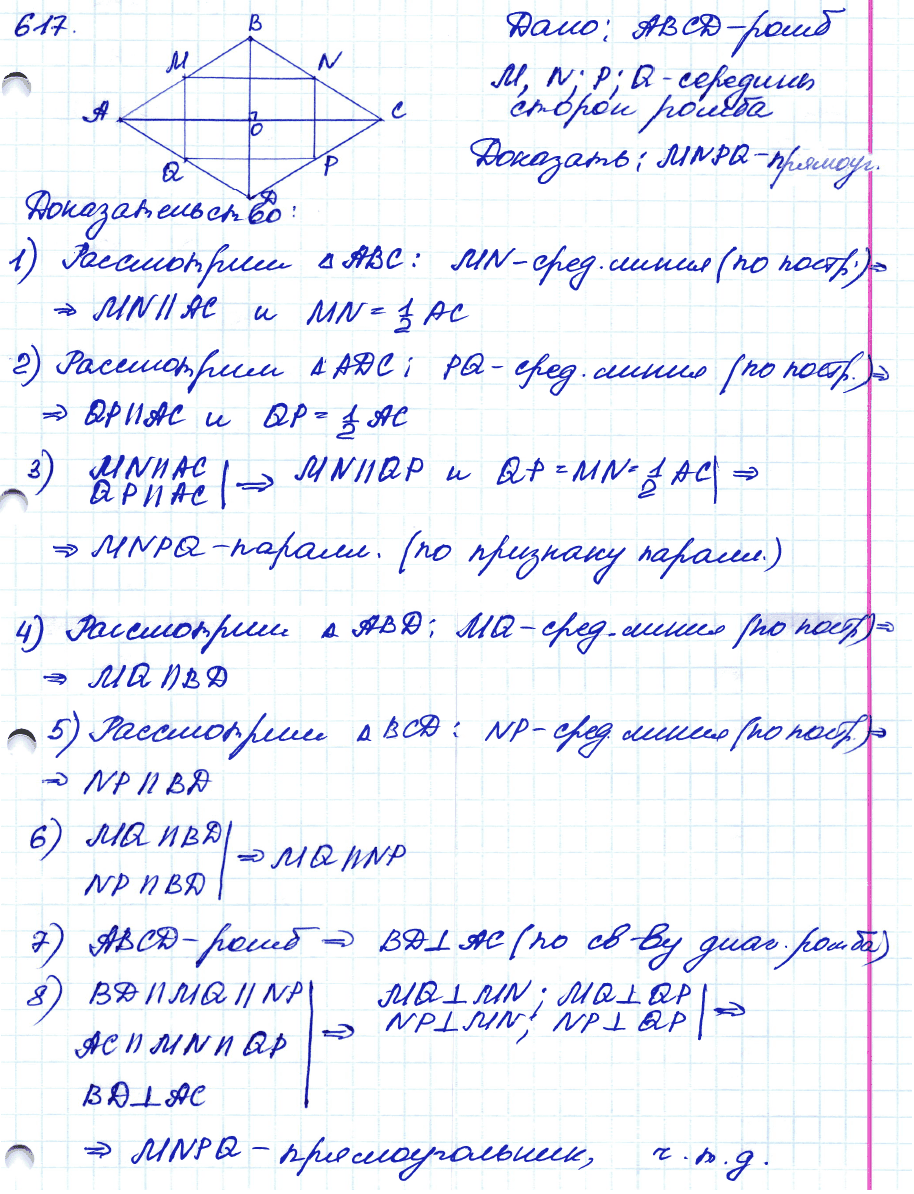 617.
B
M
N
A
O
C
Q
P
D
Дано: ABCD - ромб
M, N; P; Q - середины
сторон ромба
Доказать: MNPQ - прямоуг.
Доказательство:
1) Рассмотрим △ABC: MN - сред. линия (по постр.) ⇒
⇒ MN || AC и MN = 1/2 AC
2) Рассмотрим △ADC: PQ - сред. линия (по постр.) ⇒
⇒ QP || AC и QP = 1/2 AC
3) MN || AC
QP || AC | ⇒ MN || QP и QP = MN = 1/2 AC | ⇒
⇒ MNPQ - паралл. (по признаку паралл.)
4) Рассмотрим △ABD: MQ - сред. линия (по постр.) ⇒
⇒ MQ || BD
5) Рассмотрим △BCD: NP - сред. линия (по постр.) ⇒
⇒ NP || BD
6) MQ || BD
NP || BD | ⇒ MQ || NP
7) ABCD - ромб ⇒ BD ⊥ AC (по св-ву диаг. ромба)
8) BD || MQ || NP
AC || MN || QP
BD ⊥ AC
| ⇒ MQ ⊥ MN; MQ ⊥ QP
NP ⊥ MN; NP ⊥ QP | ⇒
⇒ MNPQ - прямоугольник, ч.т.д.